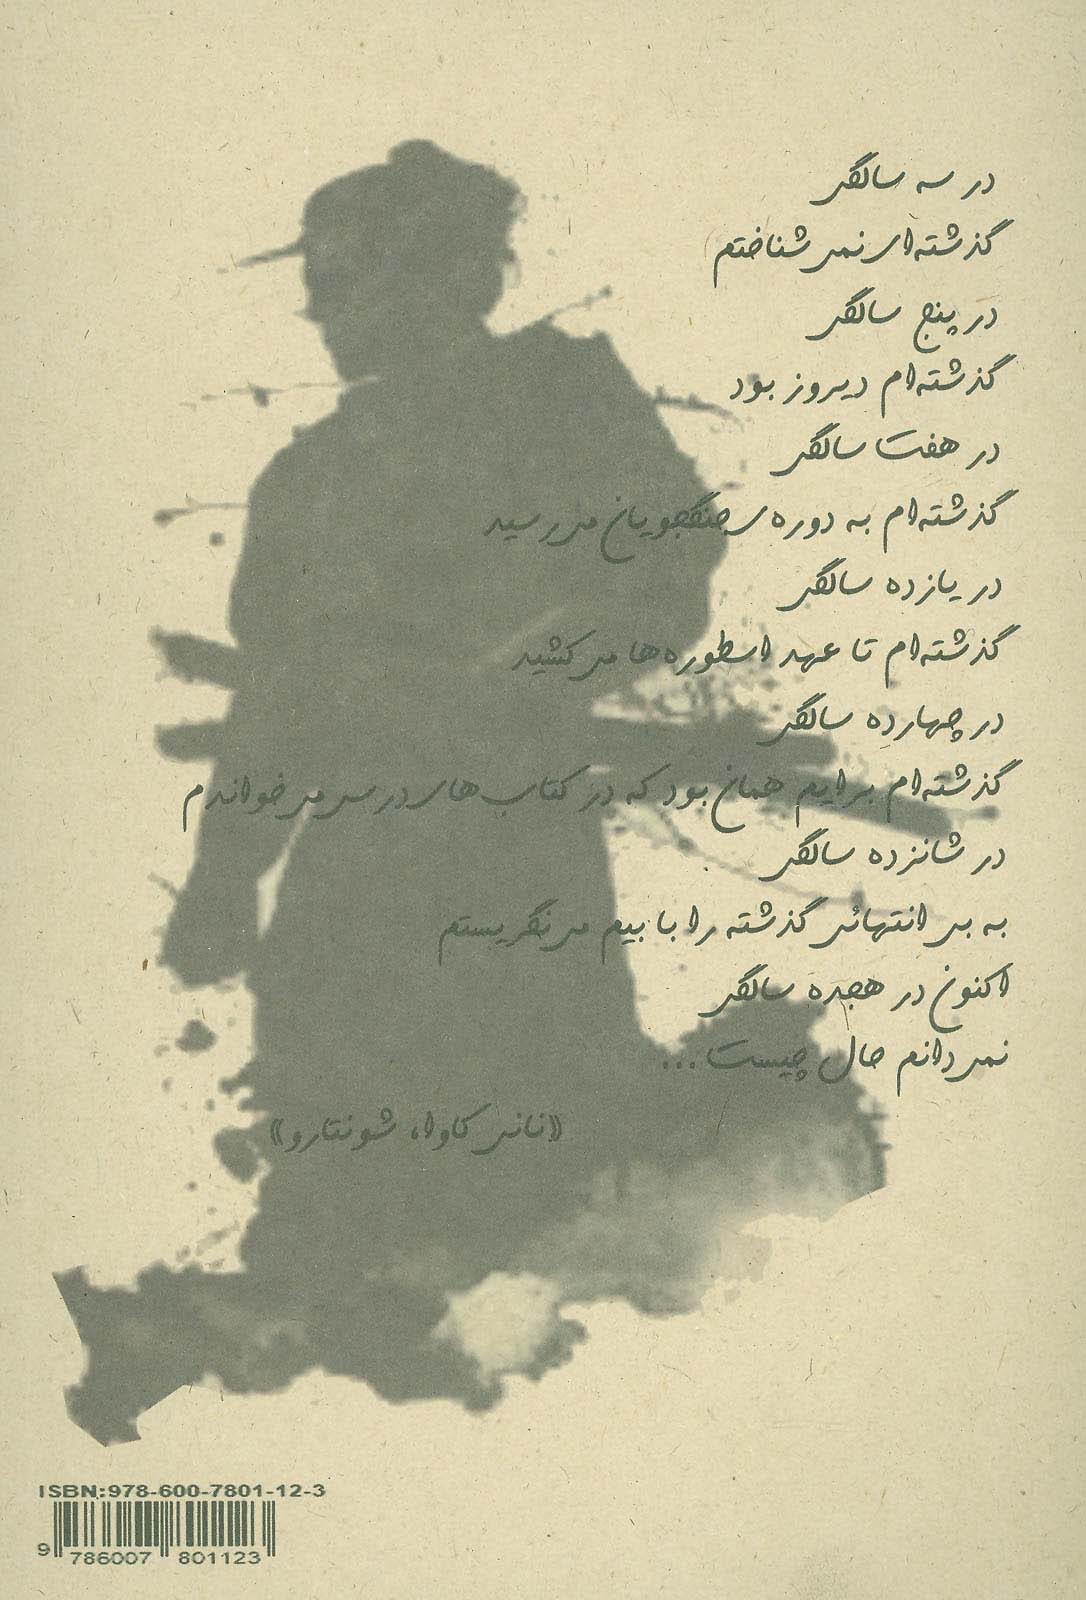 در سه سالگی
گذشته‌ای نمی‌شناختم
در پنج سالگی
گذشته‌ام دیروز بود
در هفت سالگی
گذشته‌ام به دوره‌ی جنگجویان می‌رسید
در یازده سالگی
گذشته‌ام تا عهد اسطوره‌ها می‌کشید
در چهارده سالگی
گذشته‌ام برایم همان بود که در کتاب‌های درسی می‌خواندم
در شانزده سالگی
به بی انتهائی گذشته را با بیم می‌نگریستم
اکنون در هجده سالگی
نمی‌دانم حال چیست...
«تانی کاوا، شونتارو»
ISBN:978-600-7801-12-3
9 786007 801123